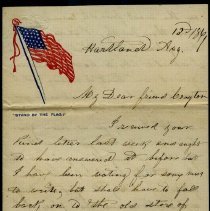 Hartland
My Dear friend
"STAND BY THE FLAG"
I received your
kind letter last week and ought
to have answered it before but
I have been waiting for some
to write, but shall have to fall
back on to the old store of